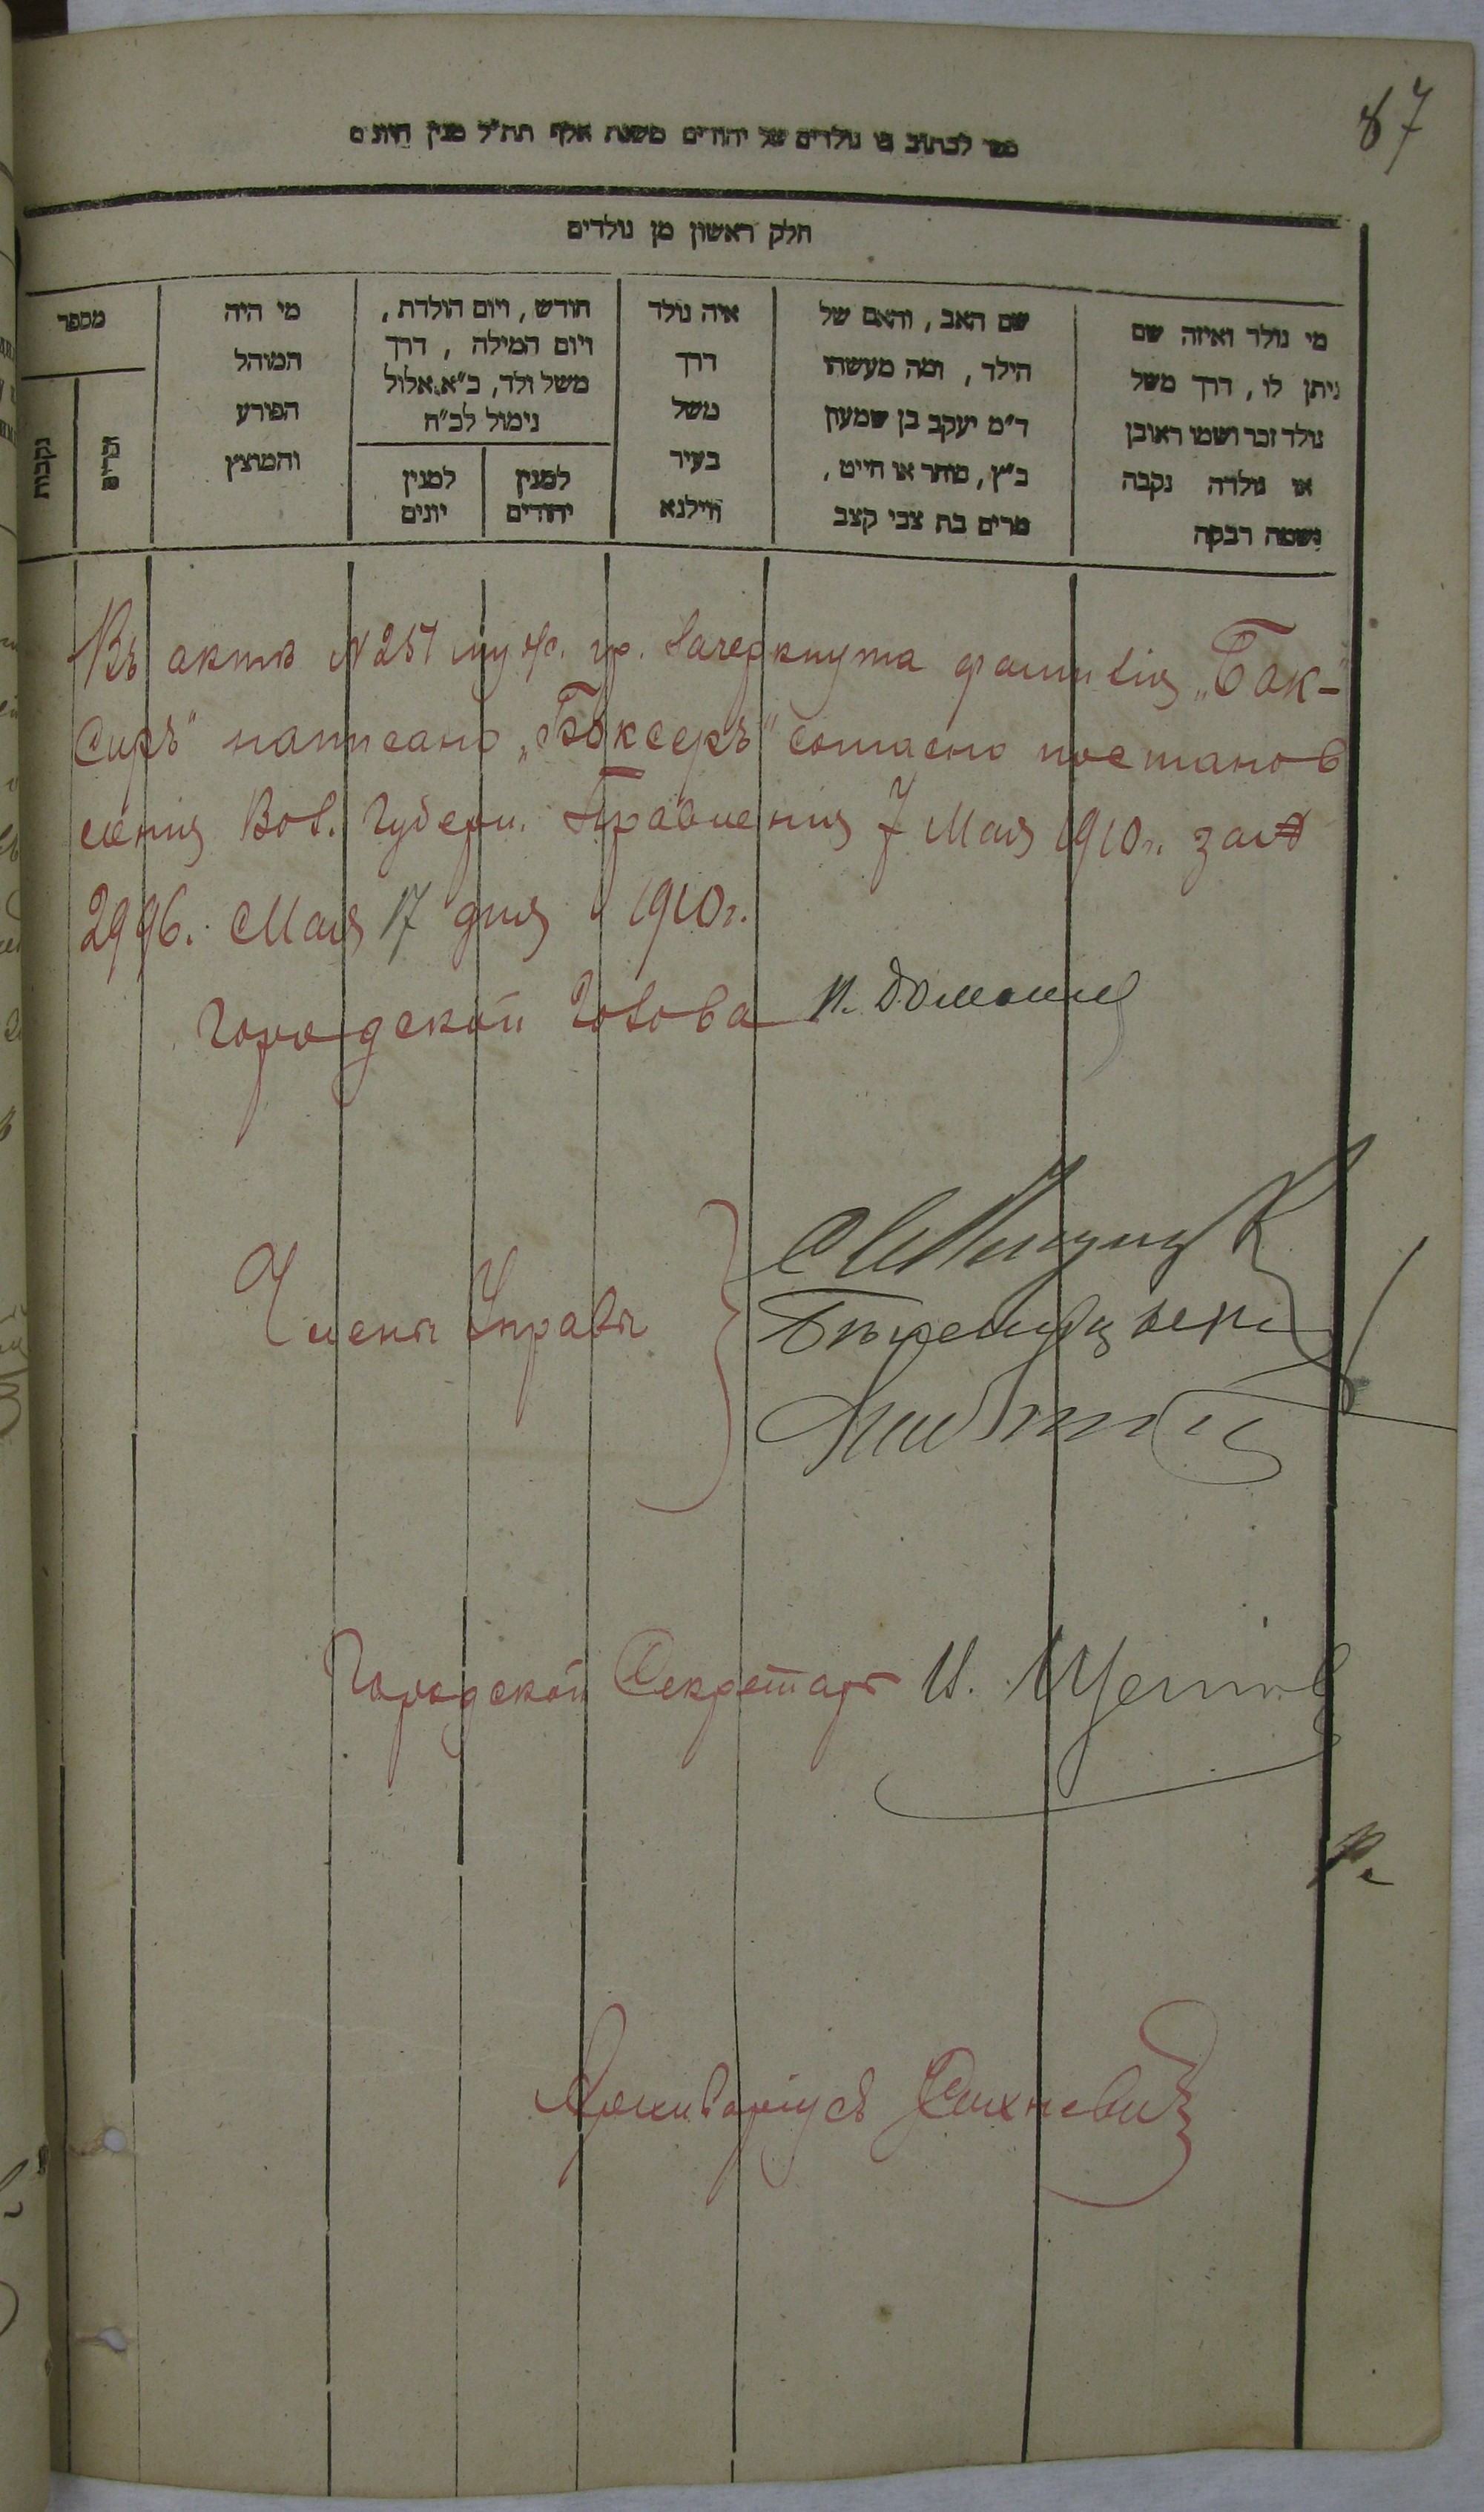 87
ספר לכתוב בו נולדים של יהודים משנת אלף תת״ל מנין היונים
חלק ראשון מן נולדים
מי נולד ואיזה שם
ניתן לו, דרך משל
נולד זכר ושמו ראובן
או נולדה נקבה
ושמה רבקה
שם האב, והאם של
הילד, ומה מעשהו
ד״מ יעקב בן שמעון
כ״ץ, סוחר או חייט,
מרים בת צבי קצב
איה נולד
דרך
משל
בעיר
ווילנא
חודש, ויום הולדת,
ויום המילה, דרך
משל ולד, כ״א אלול
נימול לכ״ח
למנין
יהודים
למנין
יונים
מי היה
המוהל
הפורע
והמוצץ
מספר
זכרים
נקבות
Въ актѣ № 257 муж. гр. Зачеркнута фамилія „Бак-
сиръ" написано „Боксеръ" согласно постанов
ленія Вол. Губерн. Правленія 7 Мая 1910 г. за №
2996. Мая 17 дня 1910 г.
Городской Голова
Члены Управы
Городской Секретарь И.
Архиваріусъ